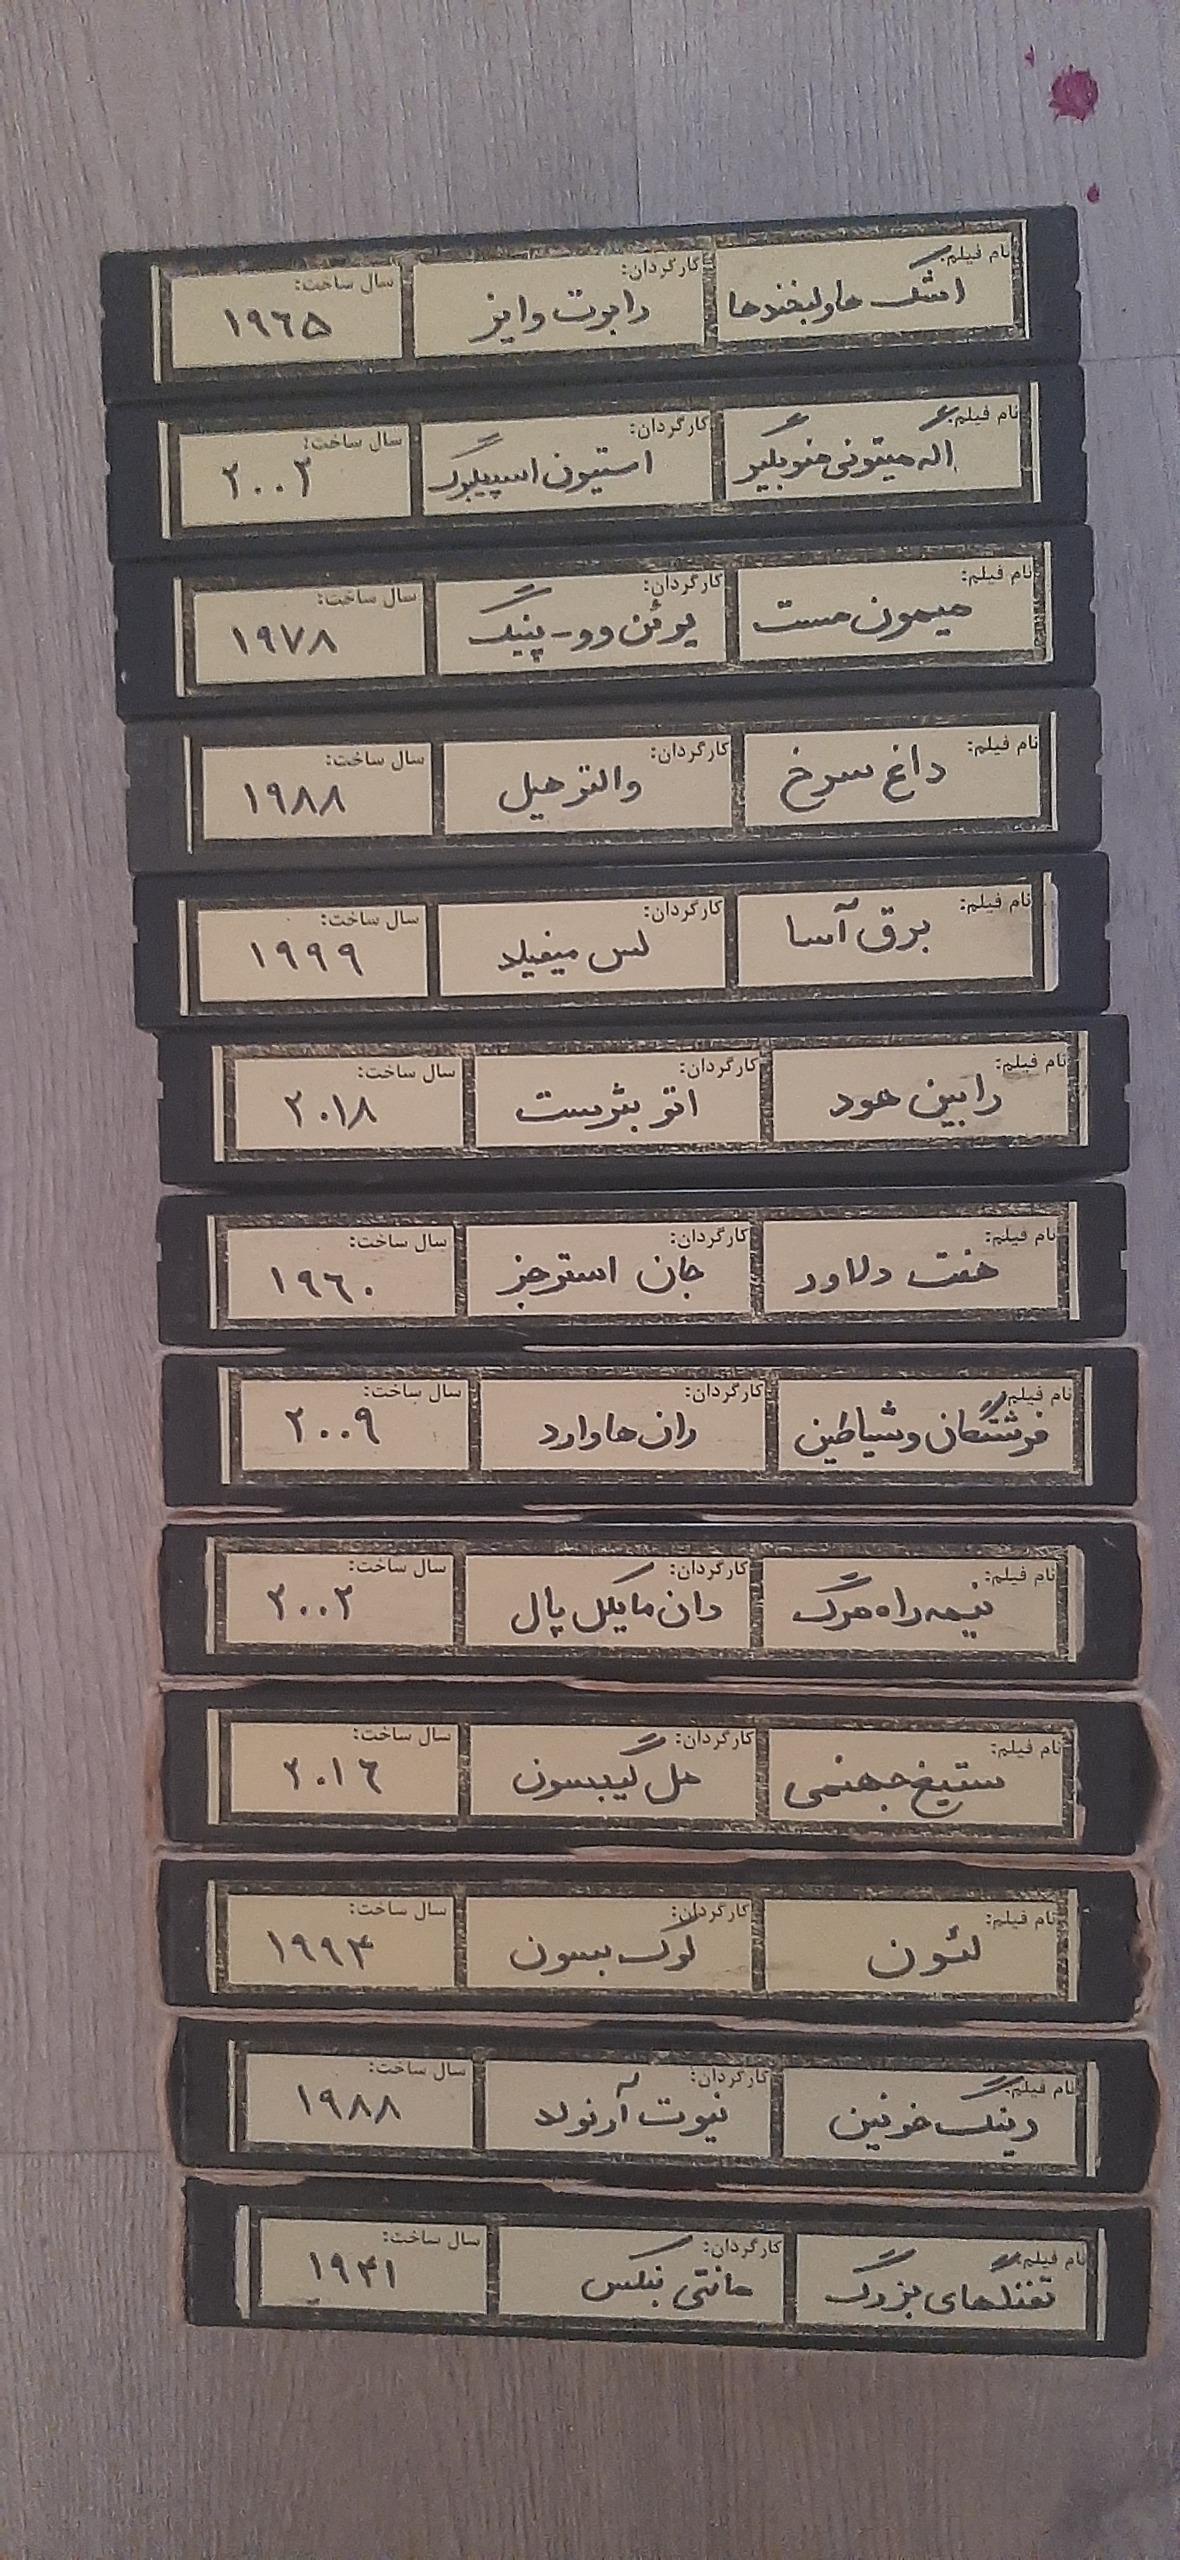 نام فیلم: کارگردان: سال ساخت:
اشک ها و لبخندها رابرت وایز ۱۹۶۵
نام فیلم: کارگردان: سال ساخت:
اگه میتونی منو بگیر استیون اسپیلبرگ ۲۰۰۲
نام فیلم: کارگردان: سال ساخت:
میمون مست یوئن وو-پینگ ۱۹۷۸
نام فیلم: کارگردان: سال ساخت:
داغ سرخ والتر هیل ۱۹۸۸
نام فیلم: کارگردان: سال ساخت:
برق آسا لس میفیلد ۱۹۹۹
نام فیلم: کارگردان: سال ساخت:
رابین هود اتو بثرست ۲۰۱۸
نام فیلم: کارگردان: سال ساخت:
هفت دلاور جان استرجز ۱۹۶۰
نام فیلم: کارگردان: سال ساخت:
فرشتگان و شیاطین ران هاوارد ۲۰۰۹
نام فیلم: کارگردان: سال ساخت:
نیمه راه مرگ دان مایکل پال ۲۰۰۲
نام فیلم: کارگردان: سال ساخت:
ستیغ جهنمی مل گیبسون ۲۰۱۶
نام فیلم: کارگردان: سال ساخت:
لئون لوک بسون ۱۹۹۴
نام فیلم: کارگردان: سال ساخت:
رینگ خونین نیوت آرنولد ۱۹۸۸
نام فیلم: کارگردان: سال ساخت:
تفنگهای بزرگ مانتی بنکس ۱۹۴۱